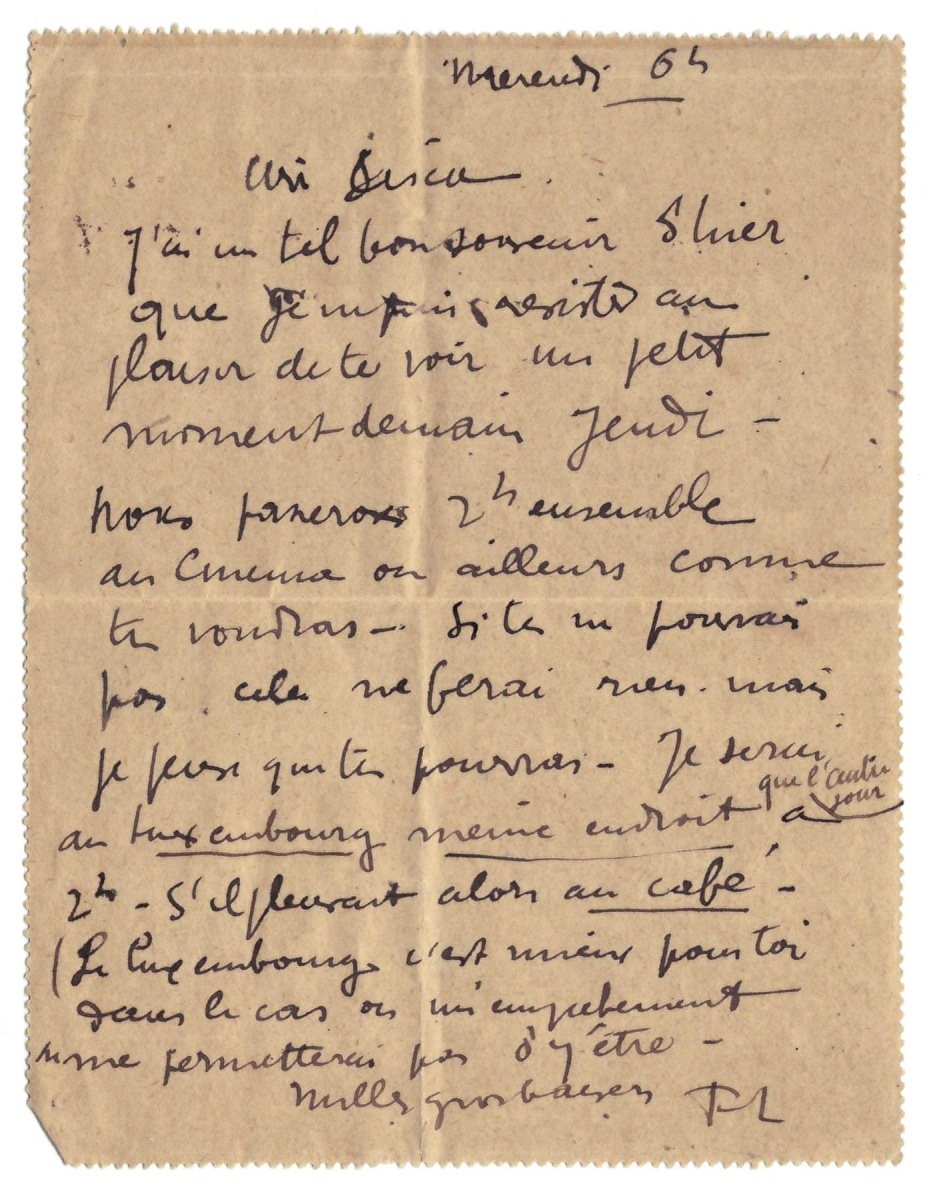 Mercredi 6h
J'ai un tel bon souvenir d'hier
que je ne puis résister au
plaisir de te voir un petit
moment demain Jeudi -
Nous passerons 2h ensemble
au Cinema ou ailleurs comme
tu voudras - Si tu ne pouvais
pas cela ne ferai rien. mais
je pense que tu pourras - Je serai
que l'autre
jour
au Luxembourg meme endroit a
2h - S'il pleuvait alors au café -
(Le Luxembourg c'est mieux pour toi
dans le cas ou un empechement
ne me permetterai pas d'y être -
Milles gros baisers